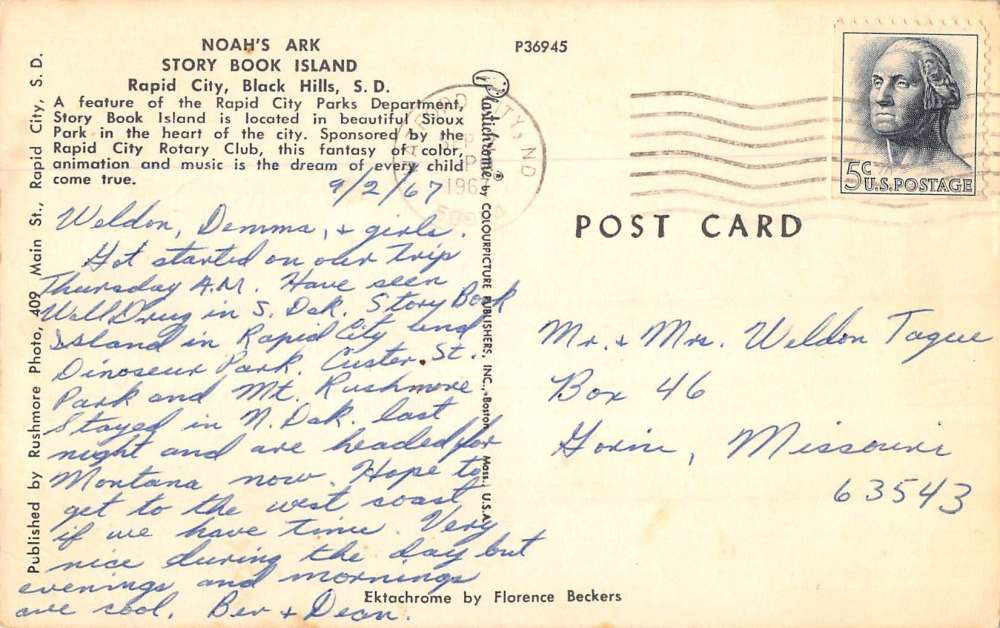 NOAH'S ARK
STORY BOOK ISLAND
Rapid City, Black Hills, S. D.
A feature of the Rapid City Parks Department,
Story Book Island is located in beautiful Sioux
Park in the heart of the city. Sponsored by the
Rapid City Rotary Club, this fantasy of color,
animation and music is the dream of every child
come true.
P36945
9/2/67
Weldon, Demma, + girls.
Got started on our trip
Thursday A.M. Have seen
Wall Drug in S. Dak. Story Book
Island in Rapid City and
Dinoseur Park. Custer St.
Park and Mt. Rushmore
Stayed in N. Dak. last
night and are headed for
Montana now. Hope to
get to the west coast
if we have time. Very
nice during the day but
evenings and mornings
are cool. Bev + Dean.
Published by Rushmore Photo, 409 Main St., Rapid City, S. D.
Plastichrome® by COLOURPICTURE PUBLISHERS, INC., Boston, Mass., U.S.A.
CITY, ND
PM
1967
5¢ U.S. POSTAGE
POST CARD
Mr. + Mrs. Weldon Tague
Box 46
Gorin, Missouri
63543
Ektachrome by Florence Beckers